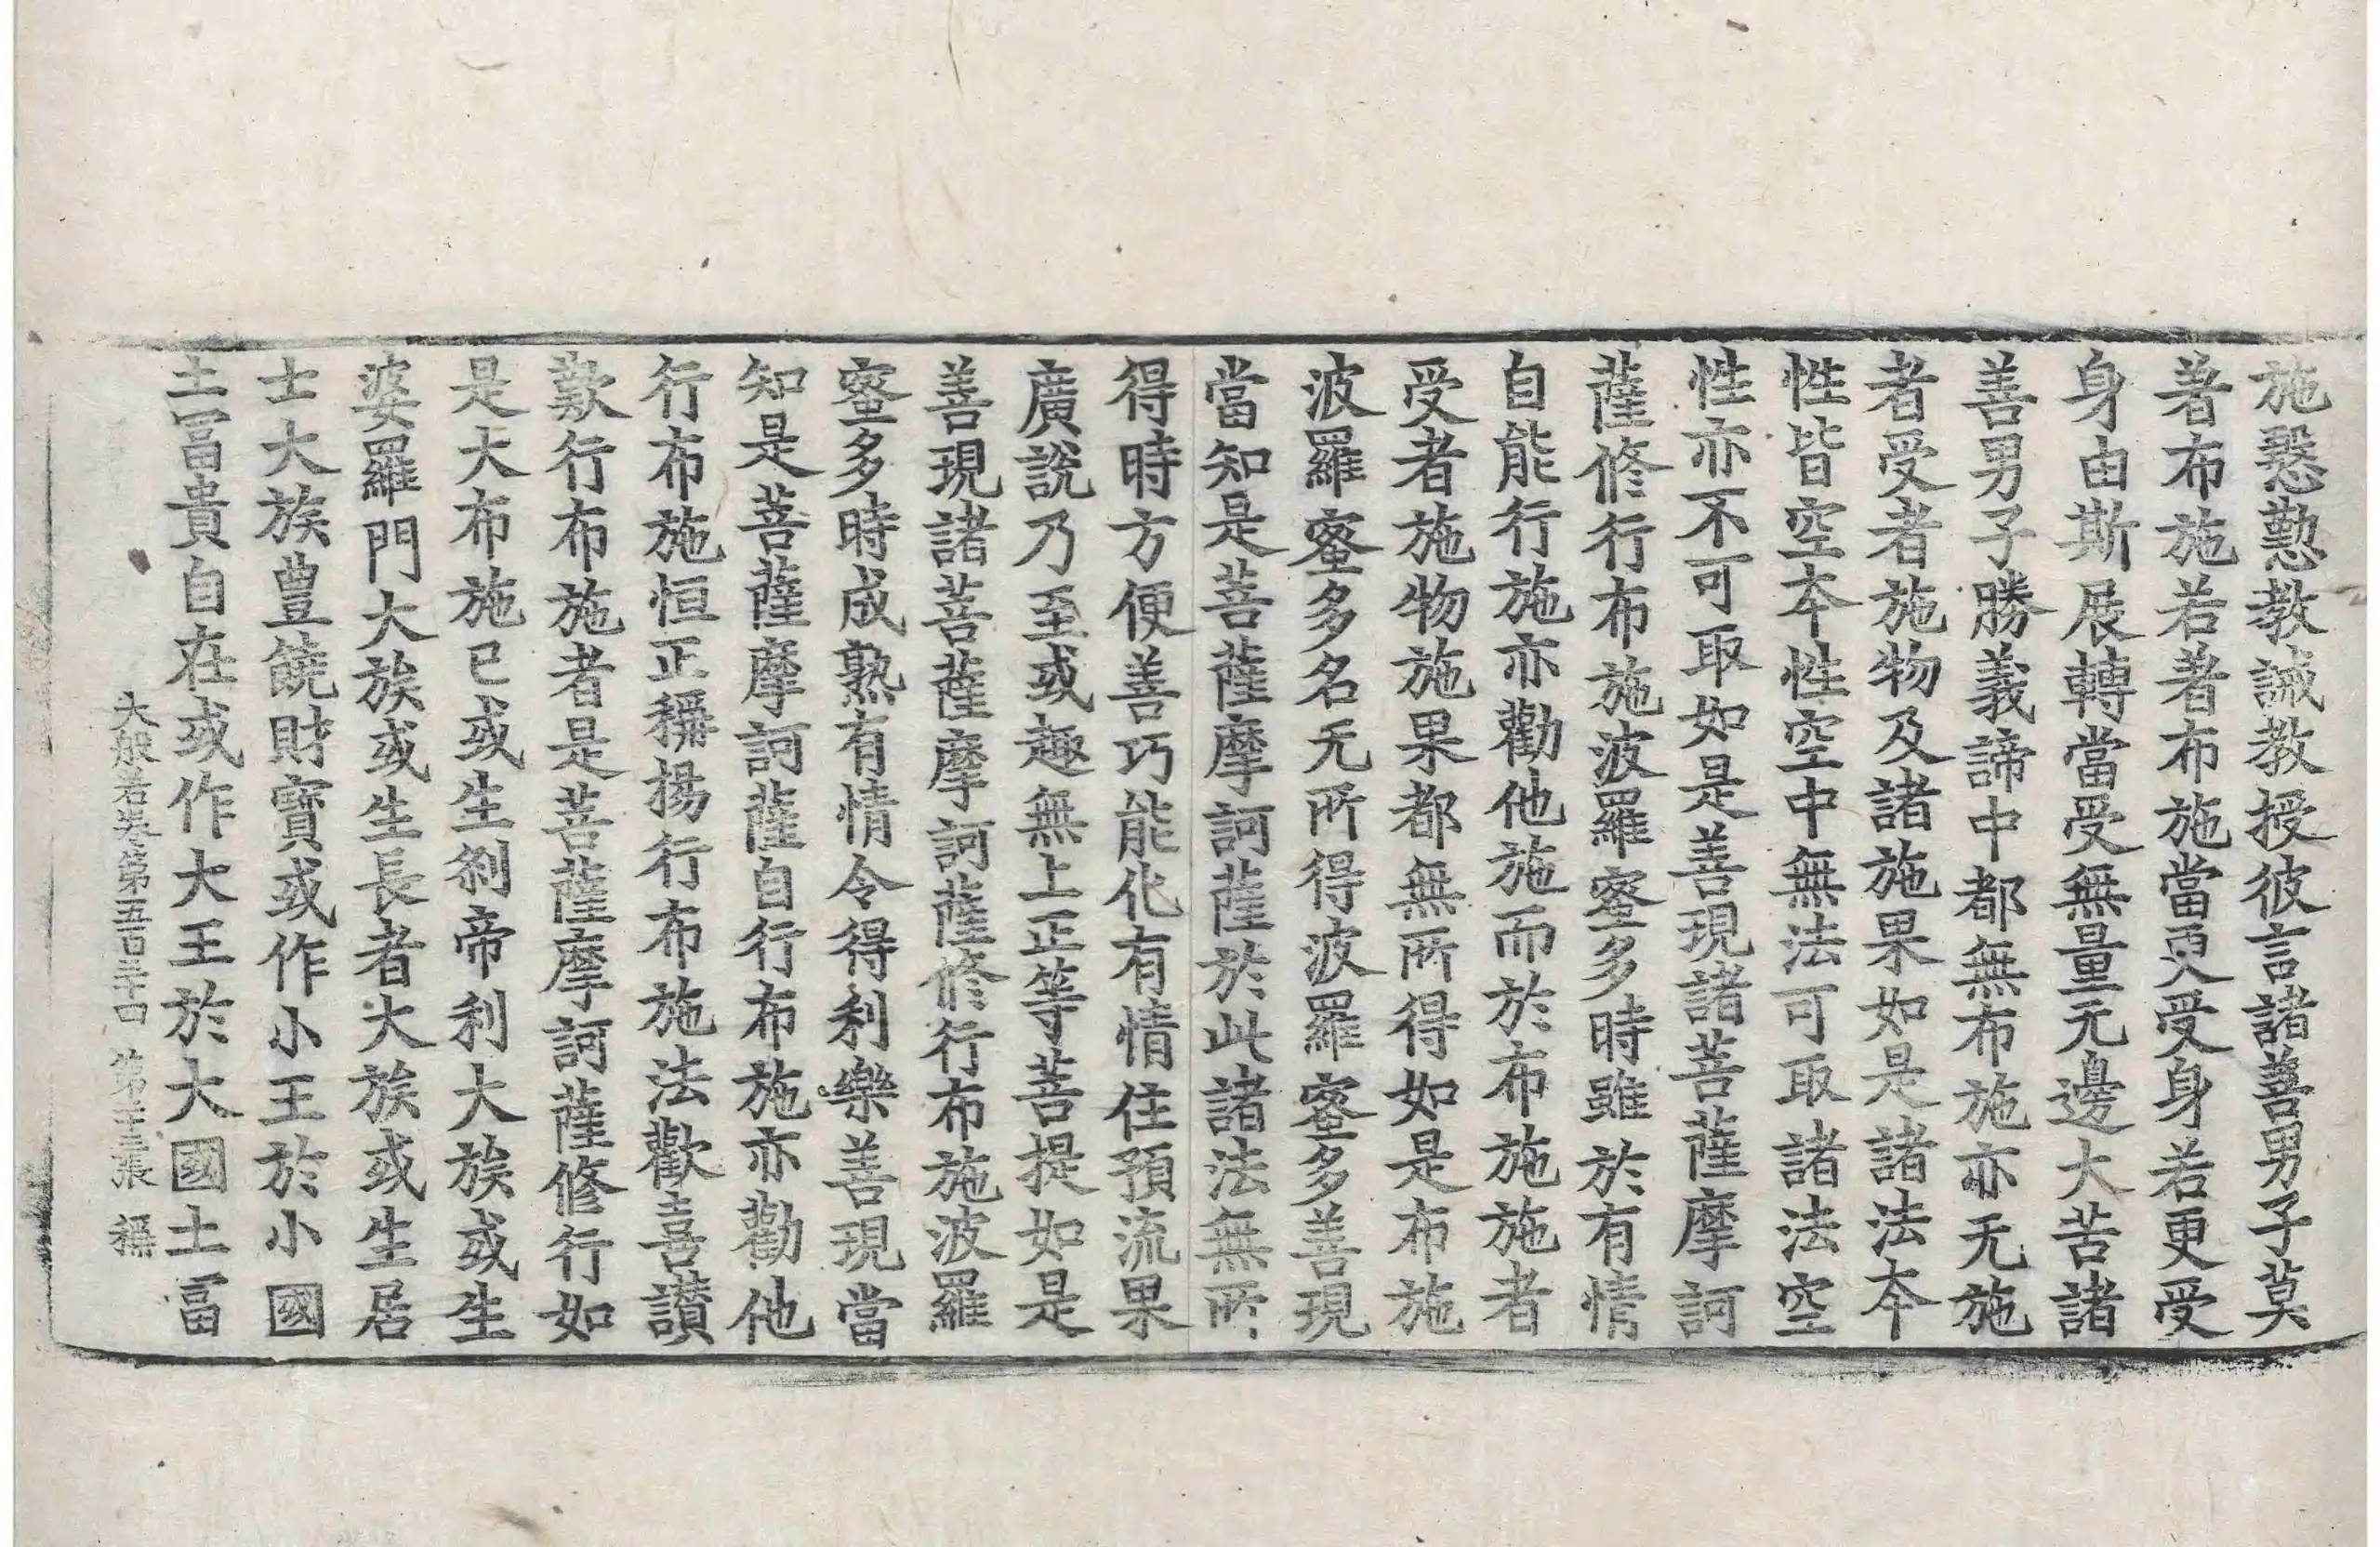 施慇懃教誡教授彼言諸善男子莫
著布施若著布施當更受身若更受
身由斯展轉當受無量无邊大苦諸
善男子勝義諦中都無布施亦无施
者受者施物及諸施果如是諸法本
性皆空本性空中無法可取諸法空
性亦不可取如是善現諸菩薩摩訶
薩修行布施波羅蜜多時雖於有情
自能行施亦勸他施而於布施施者
受者施物施果都無所得如是布施
波羅蜜多名无所得波羅蜜多善現
當知是菩薩摩訶薩於此諸法無所
得時方便善巧能化有情住預流果
廣說乃至或趣無上正等菩提如是
善現諸菩薩摩訶薩修行布施波羅
蜜多時成熟有情令得利樂善現當
知是菩薩摩訶薩自行布施亦勸他
行布施恒正稱揚行布施法歡喜讚
歎行布施者是菩薩摩訶薩修行如
是大布施已或生刹帝利大族或生
婆羅門大族或生長者大族或生居
士大族豊饒財寶或作小王於小國
土冨貴自在或作大王於大國土冨
大般若卷第五百三十四 第十三張 稱